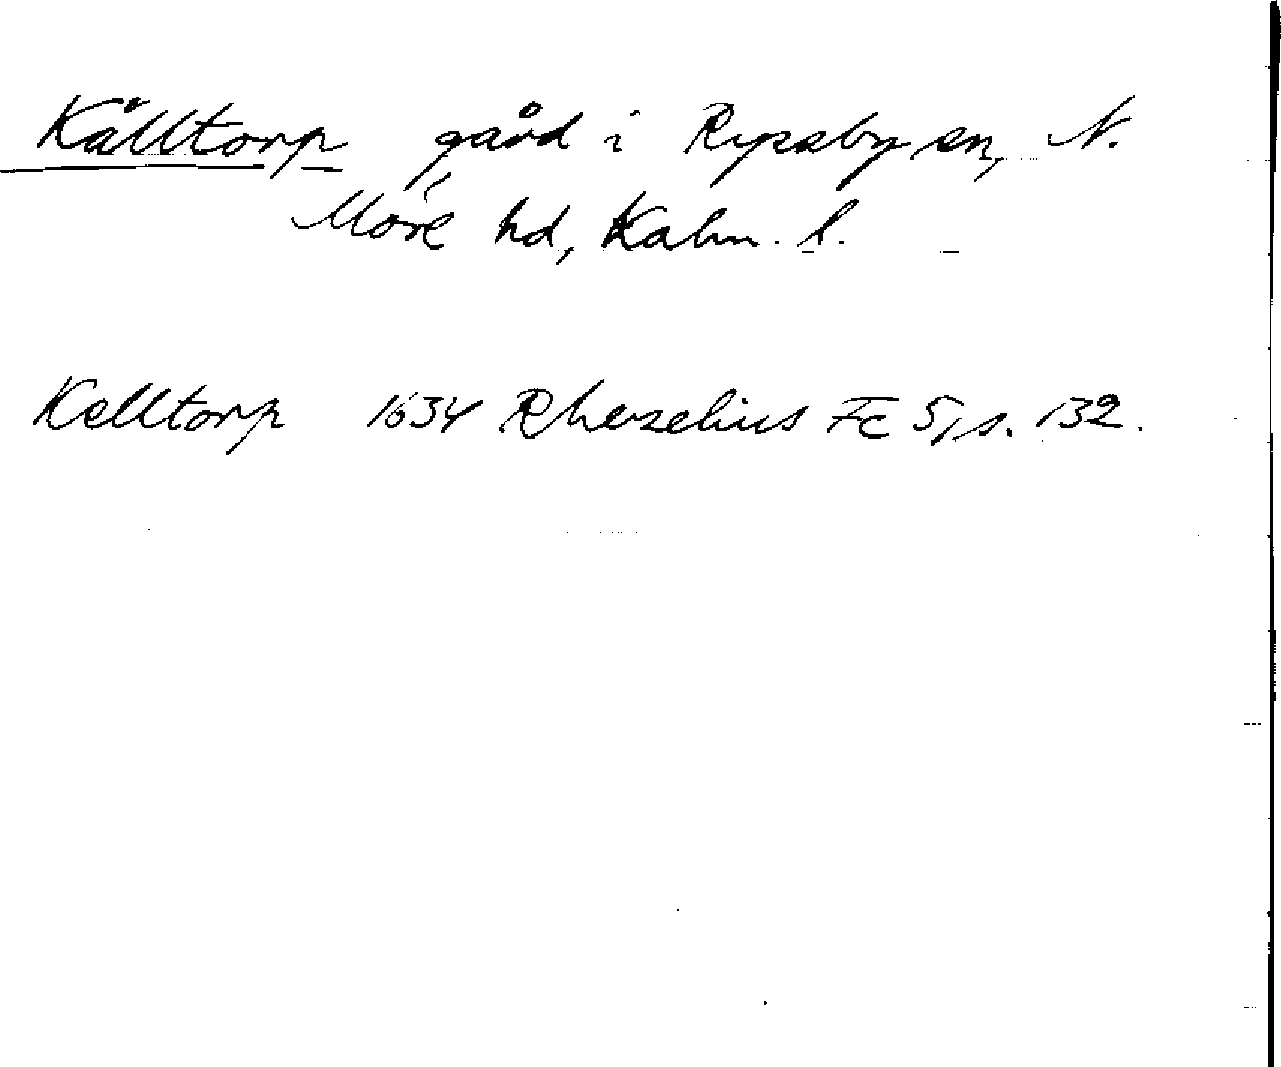 Källtorp gård i Ryssby sn, N.
Möre hd, Kalm. l.
Kelltorp 1634 Rhezelius Fc 5, s. 132.